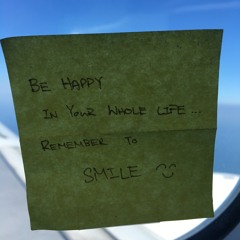 BE HAPPY
IN YOUR WHOLE LIFE...
REMEMBER TO
SMILE